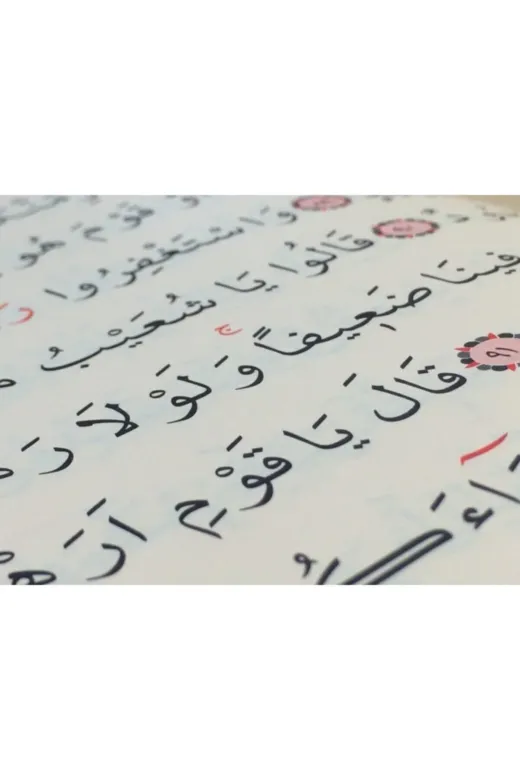 قَوْمَ هُو
وَاسْتَغْفِرُوا
قَالُوا يَا شُعَيْبُ
فِينَا ضَعِيفاً ۚ وَلَوْ لَا
٩١ قَالَ يَا قَوْمِ اَرَهْ